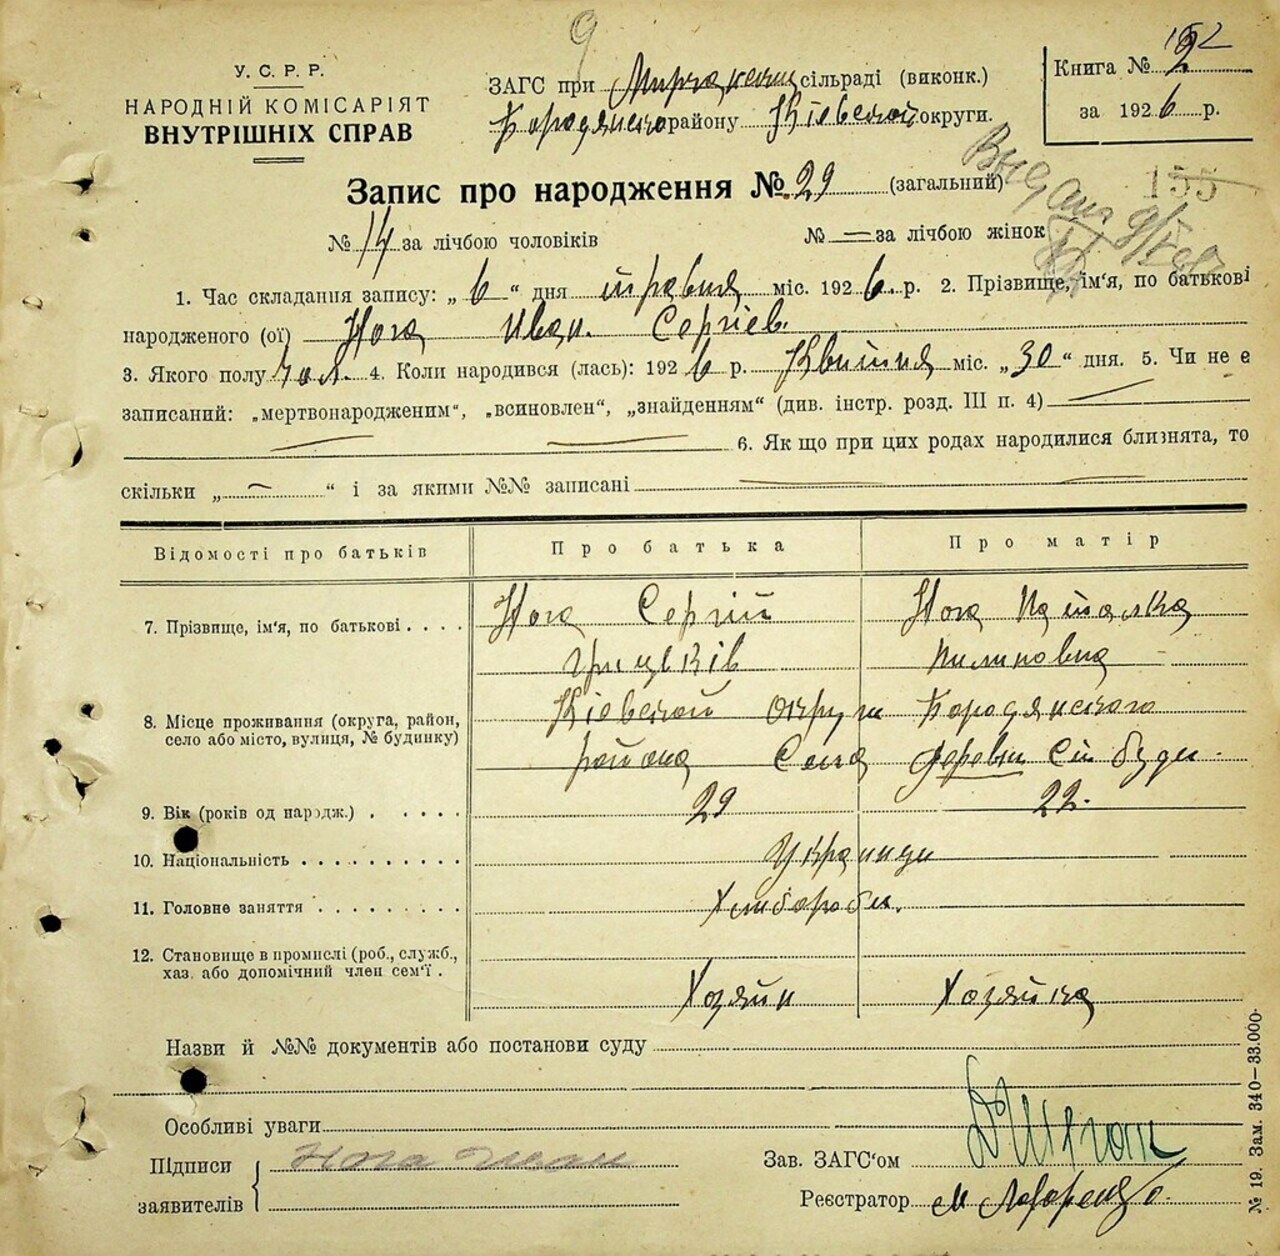 У. С. Р. Р.
НАРОДНІЙ КОМІСАРІЯТ
ВНУТРІШНІХ СПРАВ
ЗАГС при сільраді (виконк.)
Бородянсько району Кіевской округи.
Книга № 2
за 1926 р.
155
Запис про народження № 29 (загальний)
№ 14 за лічбою чоловіків № — за лічбою жінок
1. Час складання запису: „ 6 “ дня травня міс. 1926. р. 2. Прізвище, ім'я, по батькові
народженого (ої) Нога Иван. Сергіев.
3. Якого полу чол. 4. Коли народився (лась): 1926 р. Квитня міс. „30“ дня. 5. Чи не є
записаний: „мертвонародженим“, „всиновлен“, „знайденням“ (див. інстр. розд. III п. 4) —
— — 6. Як що при цих родах народилися близнята, то
скільки „ — “ і за якими №№ записані —
Відомості про батьків Про батька Про матір
7. Прізвище, ім'я, по батькові . . . . Нога Сергій Нога Наталка
Грицьків Пилиповна
8. Місце проживання (округа, район, село або місто, вулиця, № будинку) Кіевской округи Бородянского
района Села деревни Буди.
9. Вік (років од народж.) . . . . . 29 22.
10. Національність . . . . . . . . . . Украинци
11. Головне заняття . . . . . . . . . Хлибороби.
12. Становище в промислі (роб., служб., хаз. або допомічний член сем'ї .
Хозяйн Хозяйка
Назви й №№ документів або постанови суду
Особливі уваги
Підписи заявителів Нога
Зав. ЗАГС'ом
Реєстратор М
№ 19. Зам. 340—33.000.